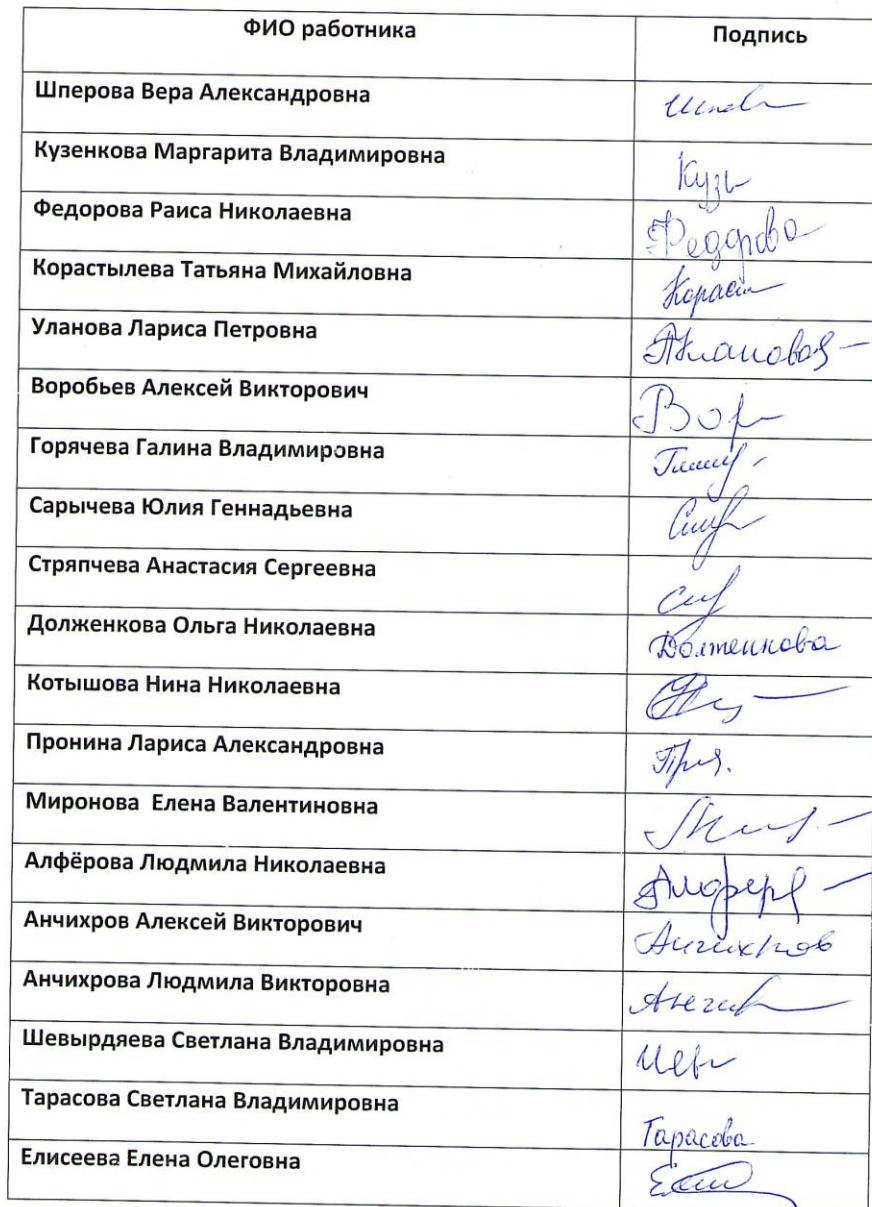 ФИО работника Подпись
Шперова Вера Александровна
Кузенкова Маргарита Владимировна Кузь
Федорова Раиса Николаевна Федорова
Корастылева Татьяна Михайловна
Уланова Лариса Петровна
Воробьев Алексей Викторович Вор
Горячева Галина Владимировна
Сарычева Юлия Геннадьевна
Стряпчева Анастасия Сергеевна
Долженкова Ольга Николаевна Долженкова
Котышова Нина Николаевна
Пронина Лариса Александровна
Миронова Елена Валентиновна
Алфёрова Людмила Николаевна
Анчихров Алексей Викторович Анчихров
Анчихрова Людмила Викторовна
Шевырдяева Светлана Владимировна
Тарасова Светлана Владимировна Тарасова
Елисеева Елена Олеговна